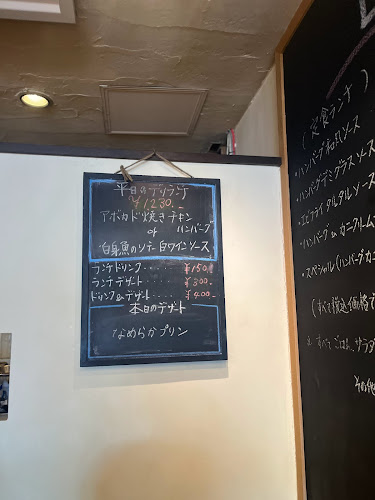 平日のデリランチ
¥1230.-
アボカド焼きチキン
or ハンバーグ
白身魚のソテー白ワインソース
ランチドリンク・・・・ ¥150.-
ランチデザート・・・・ ¥300.-
ドリンク&デザート・・・・ ¥400.-
本日のデザート
なめらかプリン
(定食ランチ)
・ハンバーグ和風ソース
・ハンバーグデミグラスソース
・エビフライタルタルソース
・ハンバーグ&カニクリーム
・スペシャル(ハンバーグカニ
(すべて税込価格で
すべてごはん、サラダ
その他